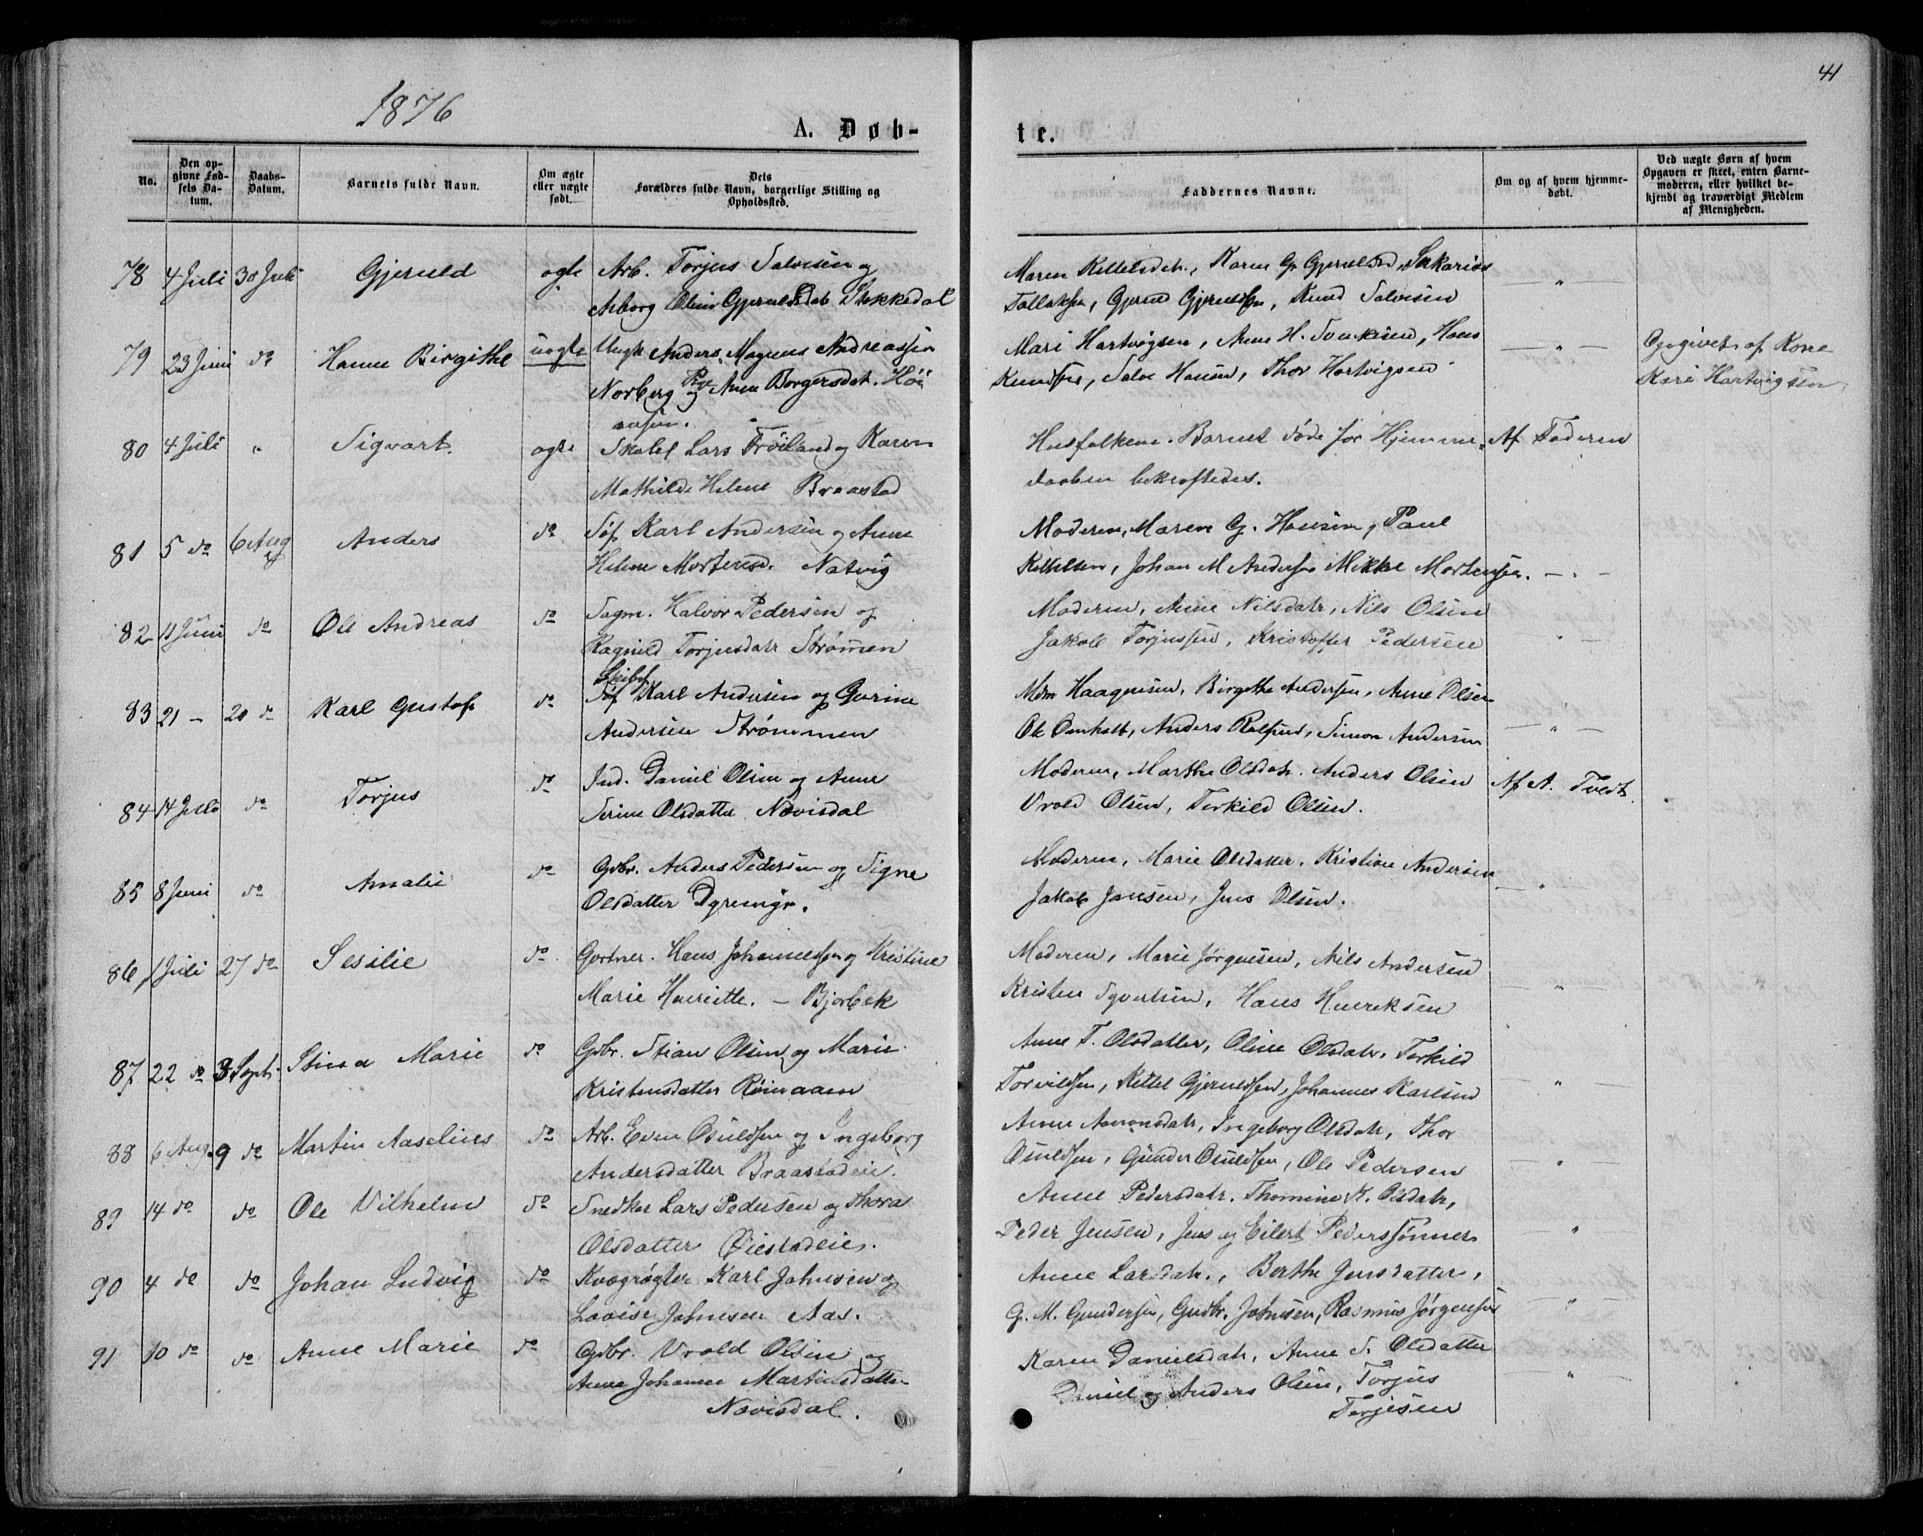 41
1876
A. Døb-
te.
No.
Den op-
givne Fød-
sels Da-
tum.
Daabs-
Datum.
Barnets fulde Navn.
Om ægte
eller uægte
født.
Dets
Forældres fulde Navn, borgerlige Stilling og
Opholdssted.
Faddernes Navne.
Om og af hvem hjemme-
døbt.
Ved uægte Børn af hvem
Opgaven er skeet, enten Barne-
moderen, eller hvilket be-
kjendt og troværdigt Medlem
af Menigheden.
78 4 Juli 30 Juli Gjeruld ægte Arb. Torjus Salvesen og
Asborg Oline Gjerulds Dat Stokkedal
Maren Kittelsdatr., Karen G. Gjerulsd, Sakarias
Tallaksen, Gjerul Gjeruldsen, Knud Salvesen
79 23 Juni do Hanne Birgithe uægte Ungk Anders Magnus Andreassen
Norberg og Pige Anne Borgersdat. Høi
aasen.
Mari Hartvigsen, Anne H. Hans
Knudsen, Salve Hansen, Thor Hartvigsen
Opgivet af Kone
Kari Hartvigsen
80 4 Juli " Sigvart. ægte Skolel Lars Frøiland og Karen
Mathilde Helene Braastad
Husfolkene. Barnet døde før Hjemme-
daaben bekræftedes.
Af Faderen
81 5 do 6 Aug Anders do Søf Karl Andersen og Anne
Helene Mortensd. Natvig
Moderen, Maren G. Hansen, Paul
Kittelsen, Johan M Andersen Mikkel Mortensen.
82 11 Juni do Ole Andreas do Sagm. Halvor Pedersen og
Ragnild Torjusdatr Strømmen
Moderen, Anne Nilsdatr, Nils Olsen
Jakob Torjussen, Kristoffer Pedersen
83 21 - 20 do Karl Gustaf do Skibsf Karl Andersen og Gurine
Andersen Strømmen
Mdm Haagensen, Birgithe Andersen, Anne Olsen
Ole Omholt, Anders Rolfsen, Simon Andersen
84 14 Juli do Torjus do Ind. Daniel Olsen og Anne
Serine Olsdatter Nævisdal
Moderen, Marthe Olsdatr. Anders Olsen
Vrold Olsen, Terkild Olsen.
Af A. Tvedt.
85 8 Juni do Amalie do Gbr. Anders Pedersen og Signe
Olsdatter Dyreng.
Moderen, Marie Olsdatter, Kristine Andersen
Jakob Jansen, Jens Olsen.
86 1 Juli 27 do Sesilie do Gartner. Hans Johannessen og Kristine
Marie Henriette. - Bjorbek
Moderen, Marie Jørgensen, Nils Andersen
Kristen Syvertsen, Hans Henriksen
87 22 do 3 Septr Stina Marie do Gbr. Stian Olsen og Marie
Kristensdatter Rønaaen
Anne T. Olsdatter, Oline Olsdatr, Terkild
Torvildsen, Kittel Gjeruldsen, Johannes Karlsen
88 6 Aug 9 do Martin Aaselius do Arb. Even Osuldsen og Ingeborg
Andersdatter Braastadeie.
Anne Aamonsdatr, Ingeborg Olsdatr, Thor
Osuldsen, Gunder Osuldsen, Ole Pedersen
89 14 do do Ole Vilhelm do Snedker Lars Pedersen og Thora
Olsdatter Øiestadeie.
Anne Pedersdatr. Thomine K. Olsdatr,
Peder Jensen, Jens og Eilert Pederssønner
90 4 do do Johan Ludvig do Kvægrøgter Karl Johnsen og
Lovise Johnsen Aas.
Anne Larsdatr., Berthe Jensdatter,
G. M. Gundersen, Gudbr. Johnsen, Rasmus Jørgensen
91 10 do do Anne Marie do Gbr. Vrold Olsen og
Anne Johanne Martinsdatter
Nævisdal.
Karen Danielsdatr, Anne S. Olsdatter
Daniel og Anders Olsen, Torjus
Terjesen